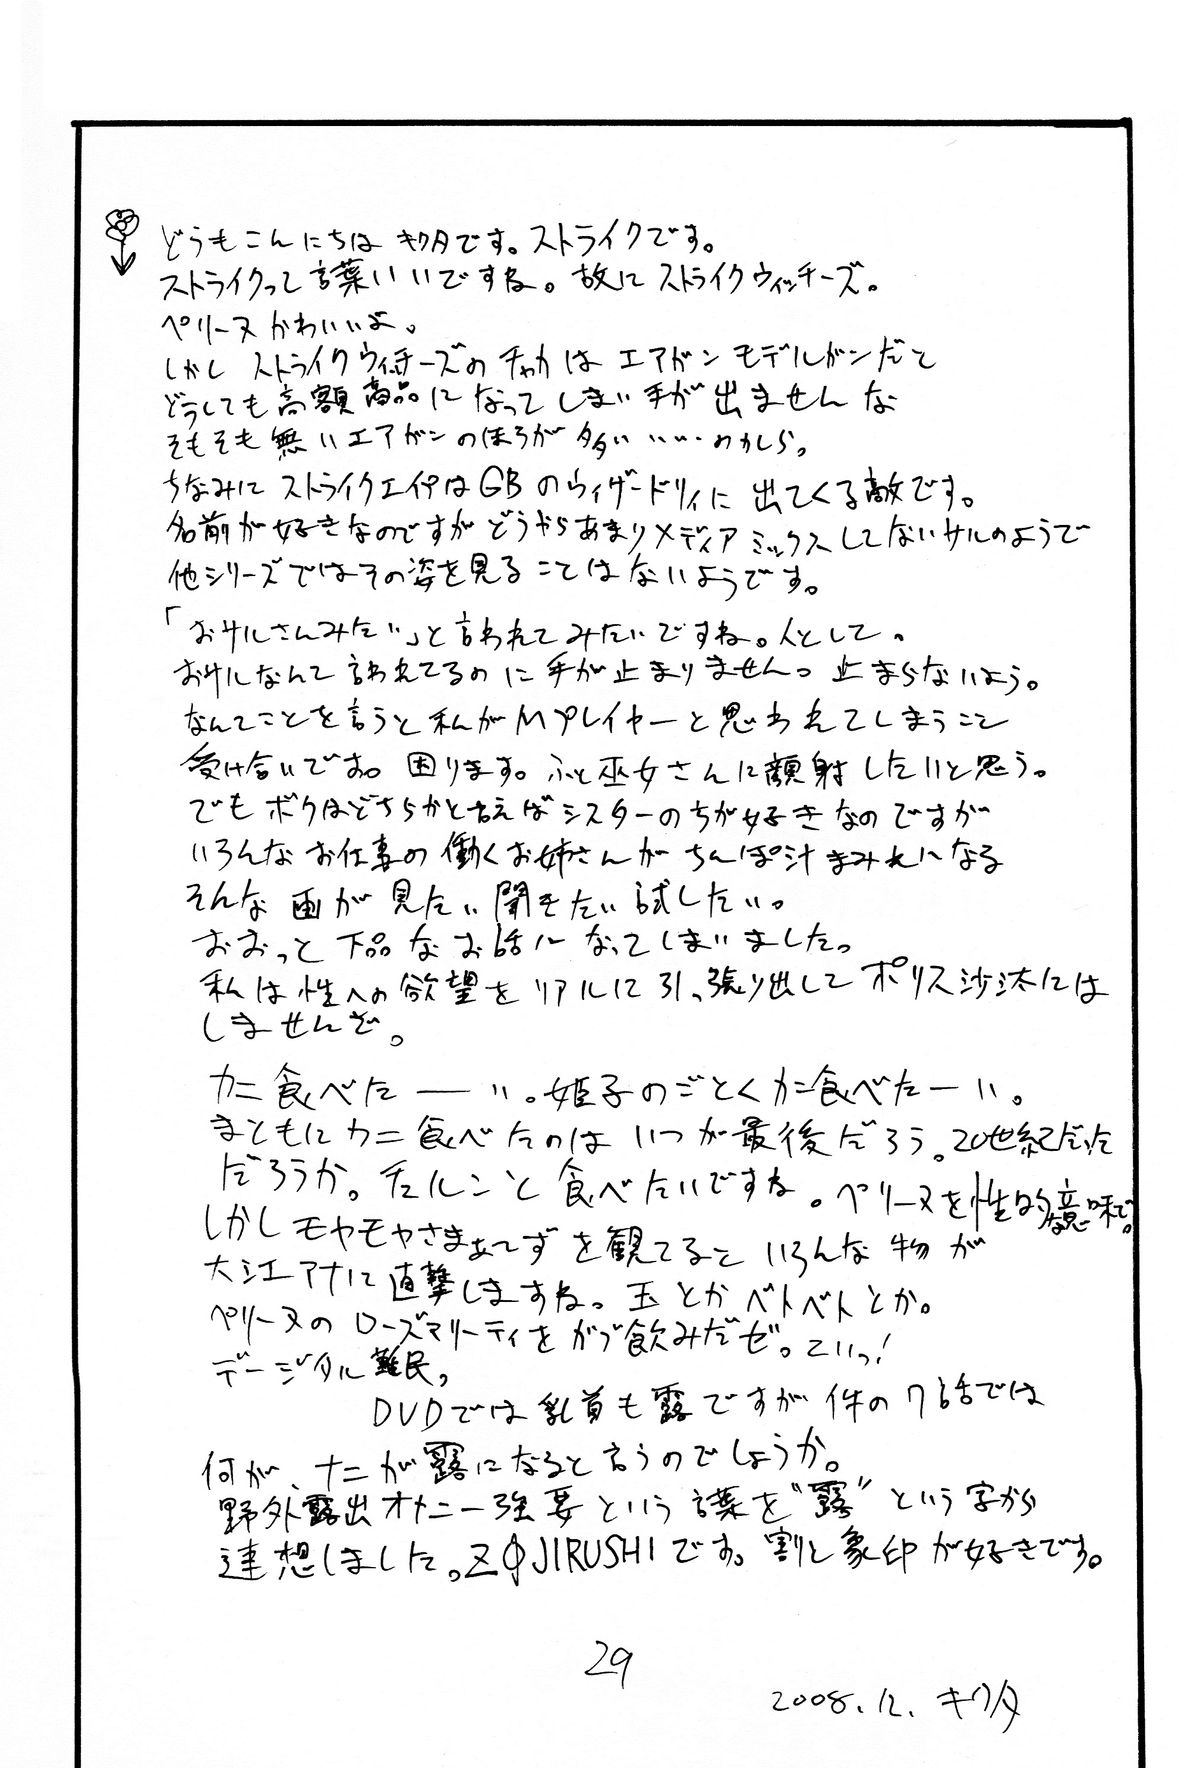 どうもこんにちは キクタです。ストライクです。
ストライクって言葉いいですね。故にストライクウィッチーズ。
ペリーヌかわいいよ。
しかし ストライクウィッチーズのチャカは エアガンモデルガンだと
どうしても高額商品になってしまい手が出ませんな
そもそも無いエアガンのほうが多い・・・・わかしら。
ちなみに ストライクエイプはGBのウィザードリィに出てくる敵です。
名前が好きなのですがどうやらあまりメディアミックスしてないサルのようで
他シリーズではその姿を見ることはないようです。
「おサルさんみたい」と言われてみたいですね。人として。
おサルなんて言われてるのに手が止まりませんっ 止まらないよう。
なんてことを言うと私がMプレイヤーと思われてしまうこと
受け合いです。困ります。ふと巫女さんに顔射したいと思う。
でもボクはどちらかと言えばシスターのが好きなのですが
いろんなお仕事の働くお姉さんがちんぽ汁まみれになる
そんな画が見たい聞きたい試したい。
おおっと下品なお話になってしまいました。
私は性への欲望をリアルに引っ張り出してポリス沙汰には
しませんぞ。
カニ食べたーい。姫子のごとくカニ食べたーい。
まともにカニ食べたのはいつが最後だろう。20世紀だった
だろうか。チュルンと食べたいですね。ペリーヌを性的な意味で。
しかしモヤモヤさまぁ〜ずを観てるといろんな物が
大江アナに直撃しますね。玉とかベトベトとか。
ペリーヌのローズマリーティをがぶ飲みだゼ。こいっ!
デージタル難民。
DVDでは乳首も露ですが件の7話では
何が、ナニが露になると言うのでしょうか。
野外露出オナニー強要という言葉を"露"という字から
連想しました。ZOJIRUSHIです。割と象印が好きです。
29
2008.12. キクタ